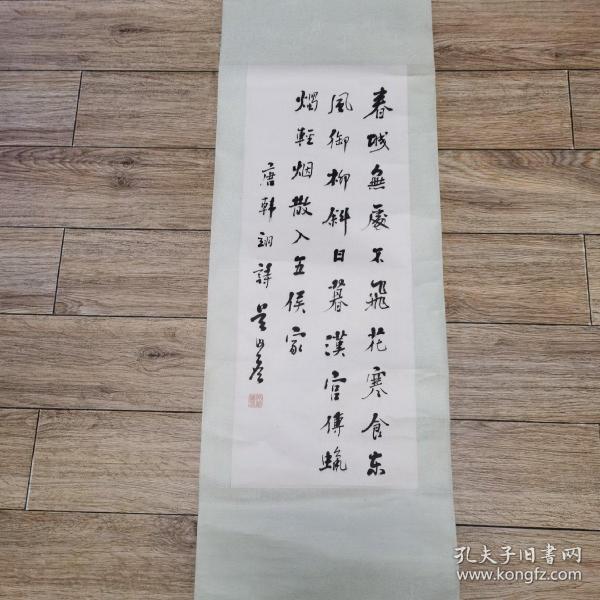 春城無處不飛花寒食東
風御柳斜日暮漢宮傳蠟
燭輕烟散入五侯家
唐韓翃詩
孔夫子旧书网
www.kongfz.com